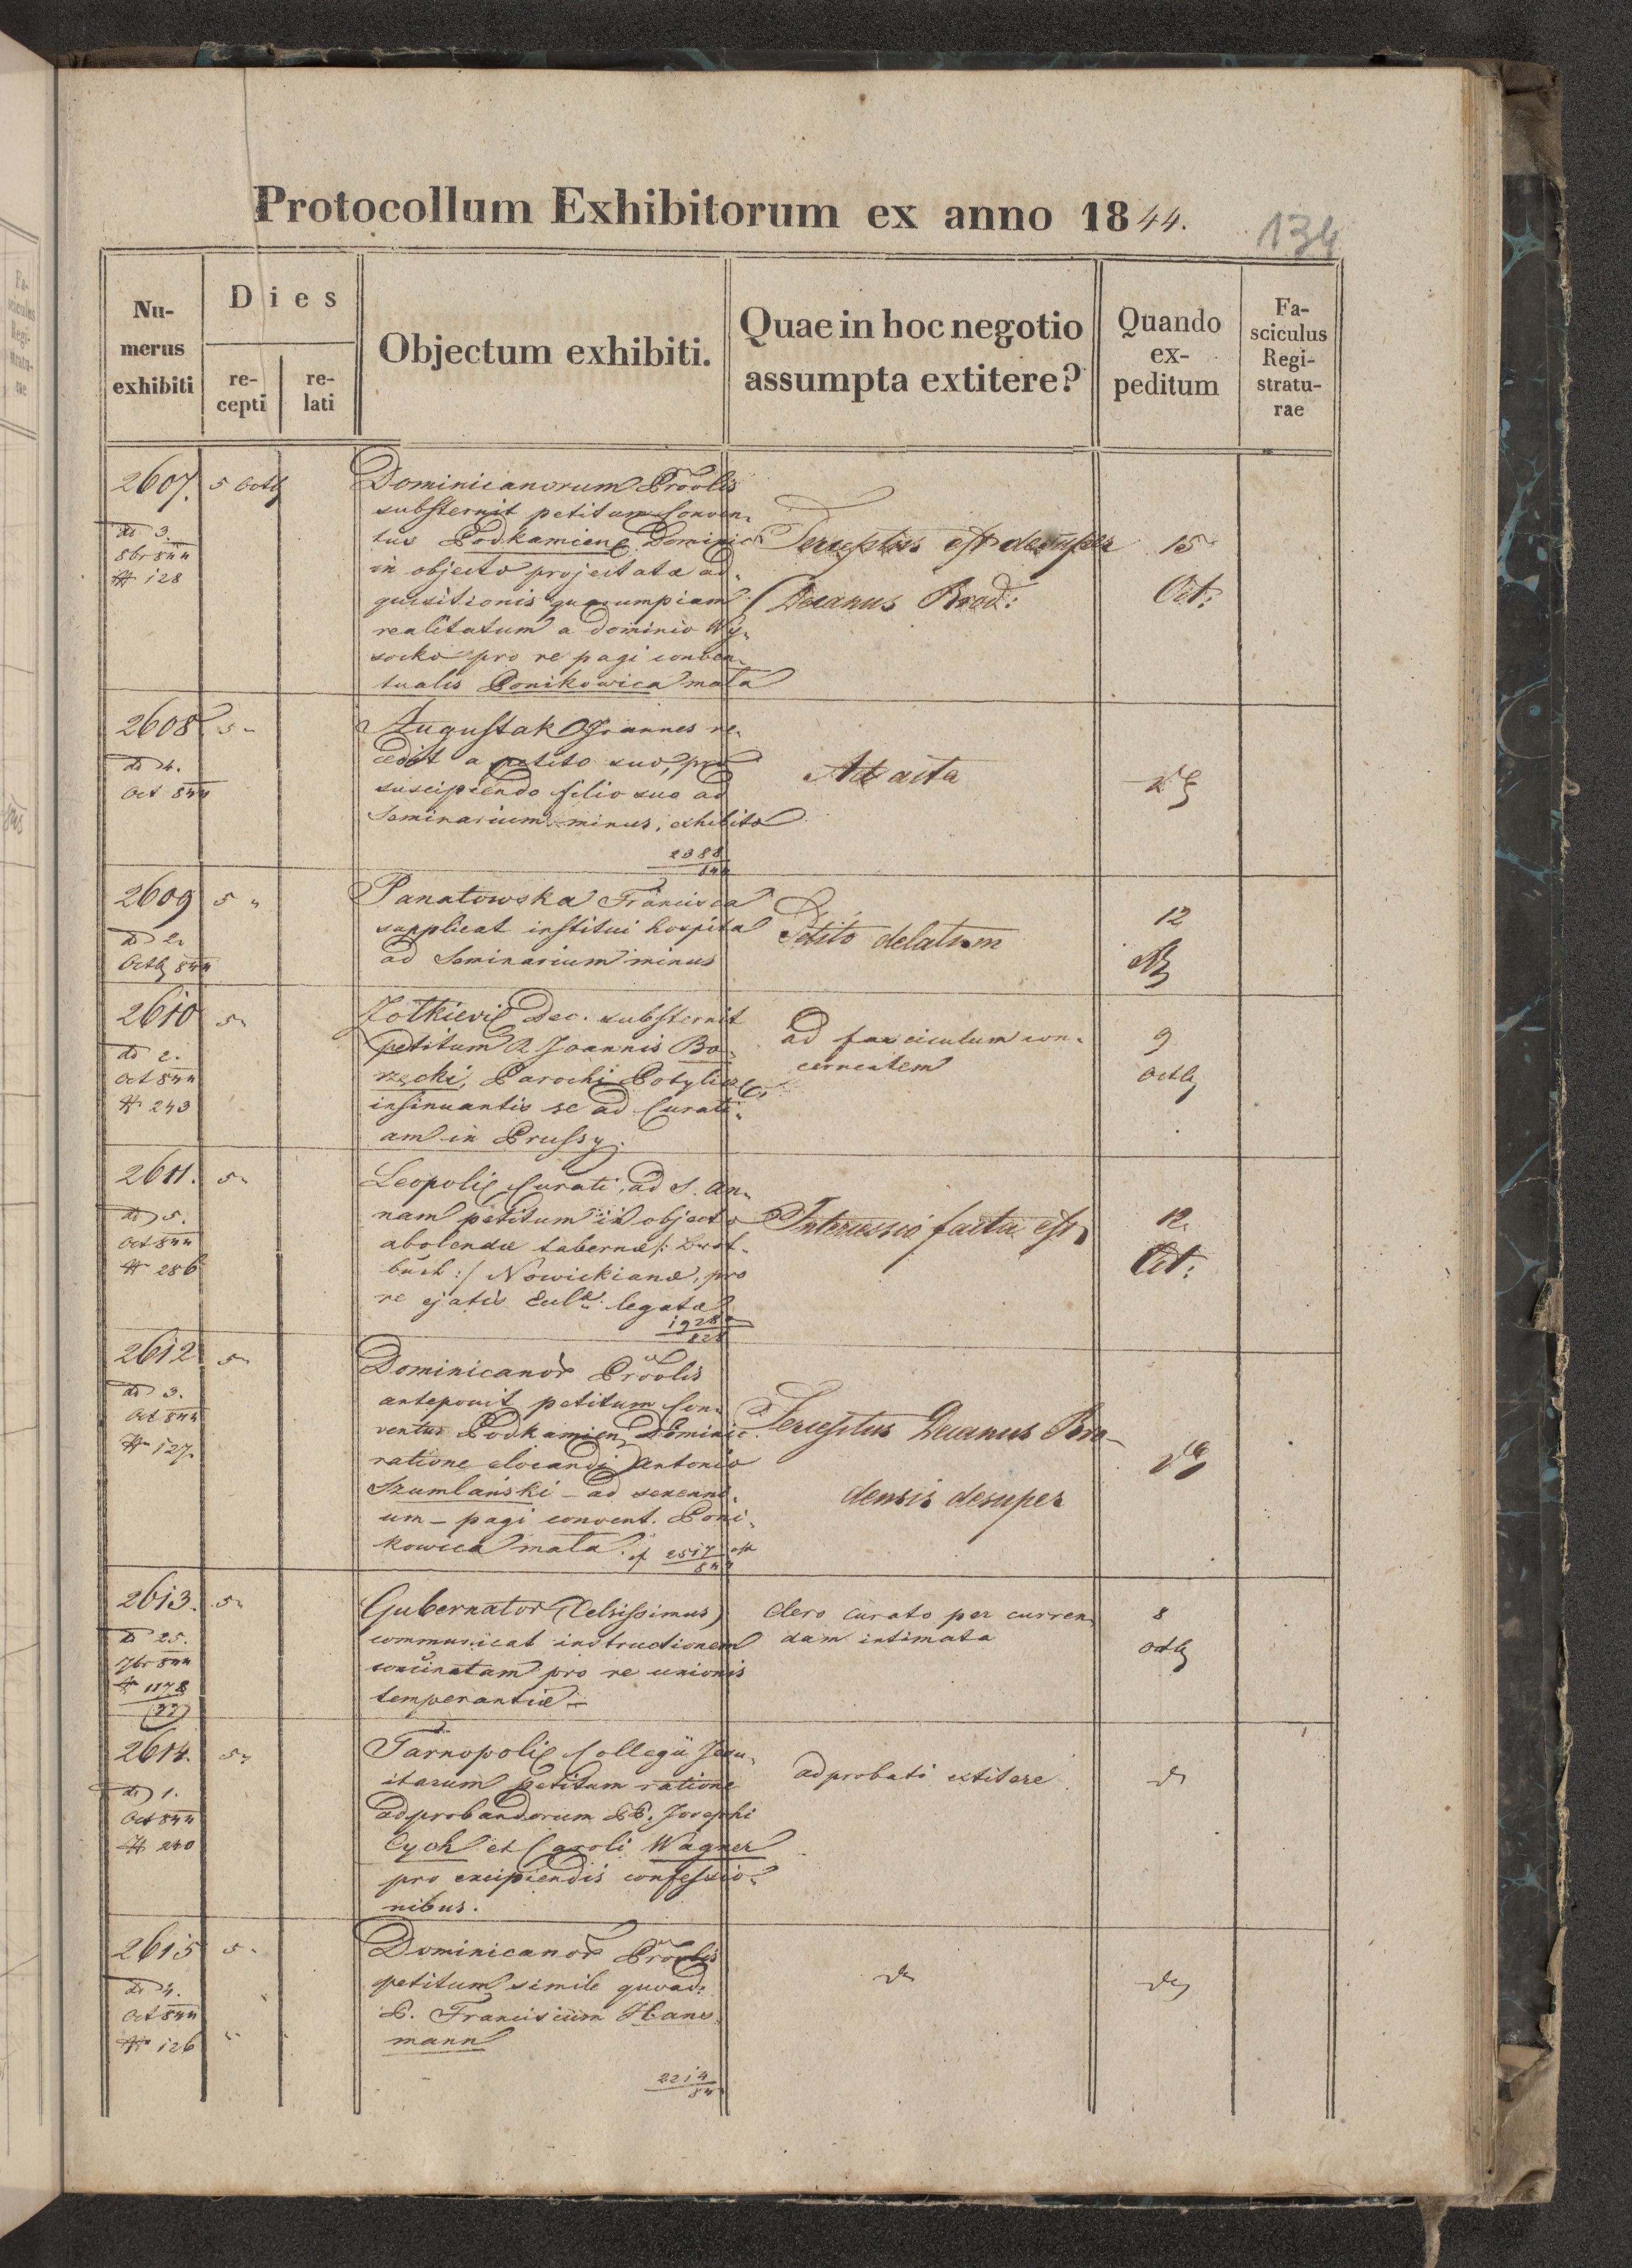 Protocollum Exhibitorum ex anno 1844.
134
Nu-
merus
exhibiti
Dies
re-
cepti
re-
lati
Objectum exhibiti.
Quae in hoc negotio
assumpta extitere?
Quando
ex-
peditum
Fa-
sciculus
Regi-
stratu-
rae
2607.
5 Octb
dd 3.
8br 844
N 128
Dominicanorum Provlis
substernit petitum Conven-
tus Podkamien Dominic
in objecto projectatae ad-
quisitionis quarumpiam
realitatum a dominio Wy-
socko pro re pagi conven-
tualis Ponikowica mała
est desuper
Decanus Brod:
15
Oct:
2608
5 "
dd 4.
Oct 844
Augustak Joannes re-
cedit a petito suo, pro
suscipiendo filio suo ad
Seminarium minus, exhibito
2388
844
Ad acta
2609
5 "
dd 2.
Octb 844
Panatowska Francisca
supplicat institui hospita
ad Seminarium minus
Petito delatum
12
2610
5 "
dd 2.
Oct 844
N 243
Zołkievi Dec. substernit
petitum R Joannis Bo-
rzęcki, Parochi Potylicz
insinuantis se ad Curati-
am in Prussy.
ad fasciculum con-
cernentem
9
Octb
2611.
5 "
dd 5.
Oct 844
N 286
Leopoli Curati, ad S. An-
nam petitum in objecto
abolendae tabernae
Nowickianae, pro
re ejatis Eulae legatae
1928
828
Intercessio facta est
12.
Oct:
2612
5 "
dd 3.
Oct 844
N 127.
Dominicanor Provlis
anteponit petitum Con-
ventus Podkamien Dominic.
ratione elocandi Antonio
Szumlański – ad sexenni-
um – pagi convent. Poni-
kowica mała.
2517
844
Decanus Bro-
densis desuper
2613.
5 "
dd 25.
7br 844
N 1178
Gubernator (Celsissimus)
communicat instructionem
concinatam pro re unionis
temperantiae –
Clero curato per curren-
dam intimata
8
Octb
2614.
5 "
dd 1.
Oct 844
N 240
Tarnopoli Collegii Jesu-
itarum petitum ratione
adprobandorum PP. Josephi
Cych et Caroli Wagner
pro excipiendis confessio-
nibus.
adprobati extitere
do
2615
5 "
dd 4.
Oct 844
N 126
Dominicanor Provlis
petitum simile quoad
P. Franciscum Hans-
mann
2214
84
do
do